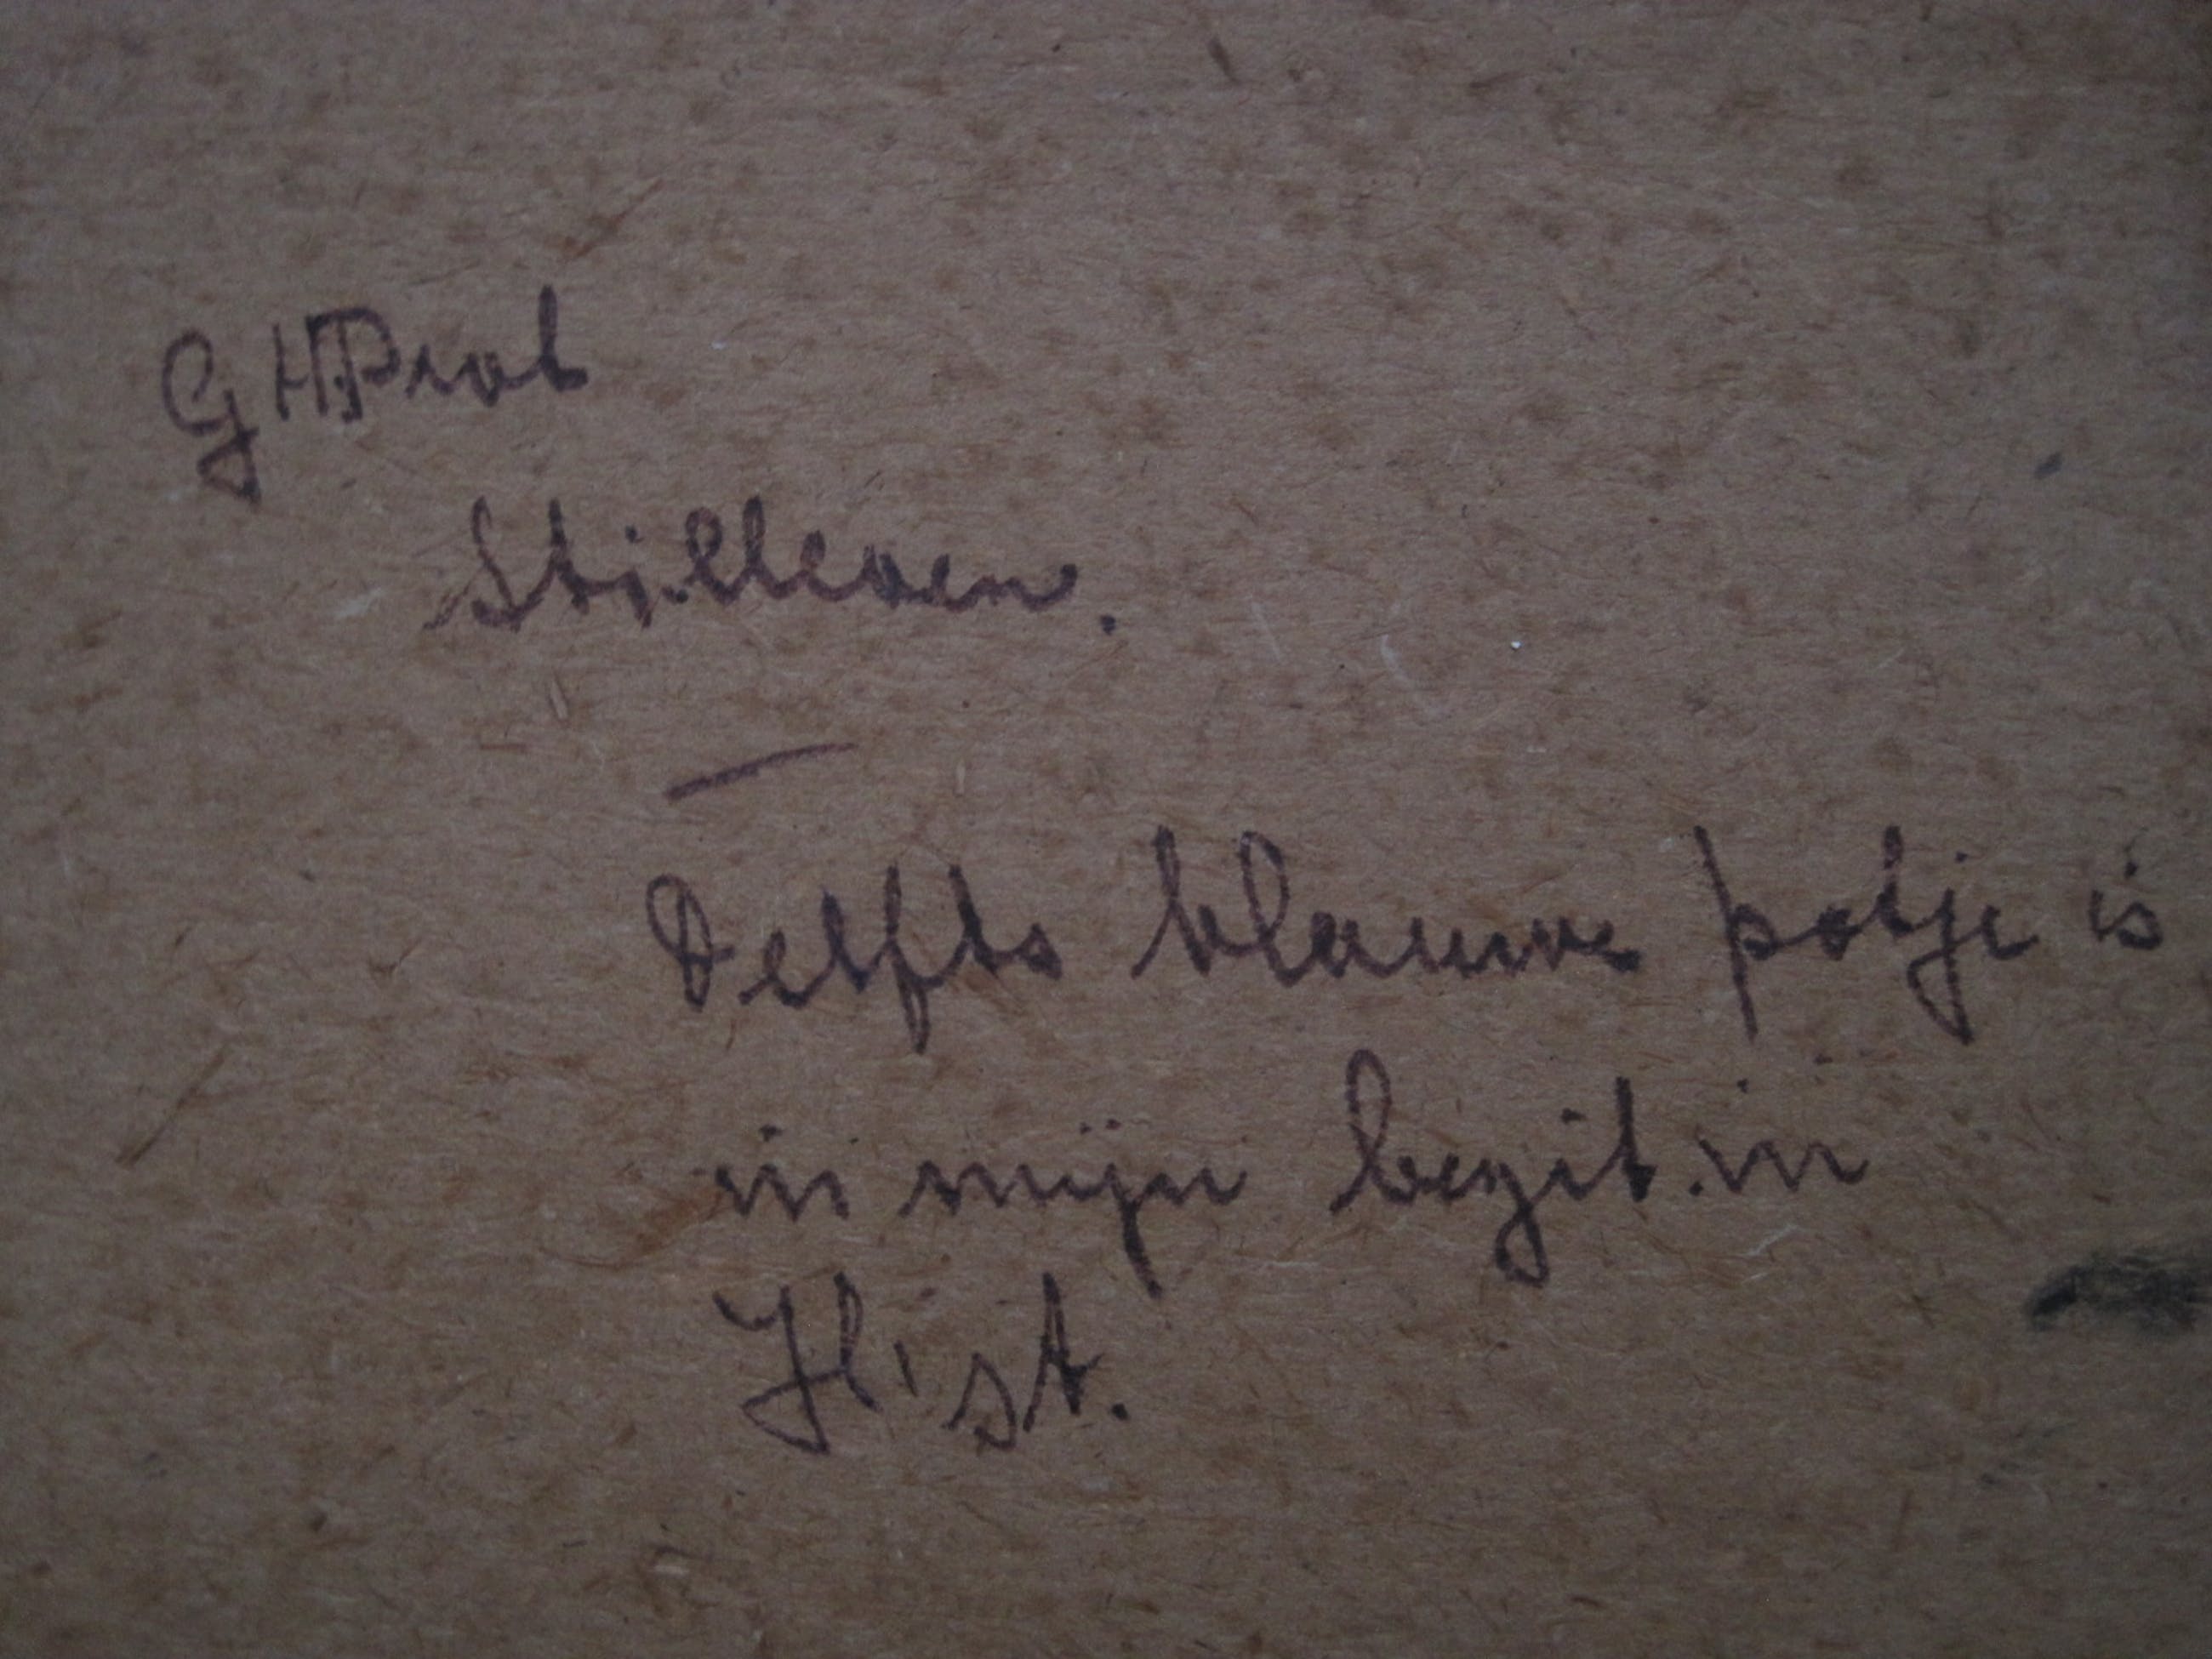 G H Prot
Stilleven.
Delfts blauwe potje is
in mijn bezit. in